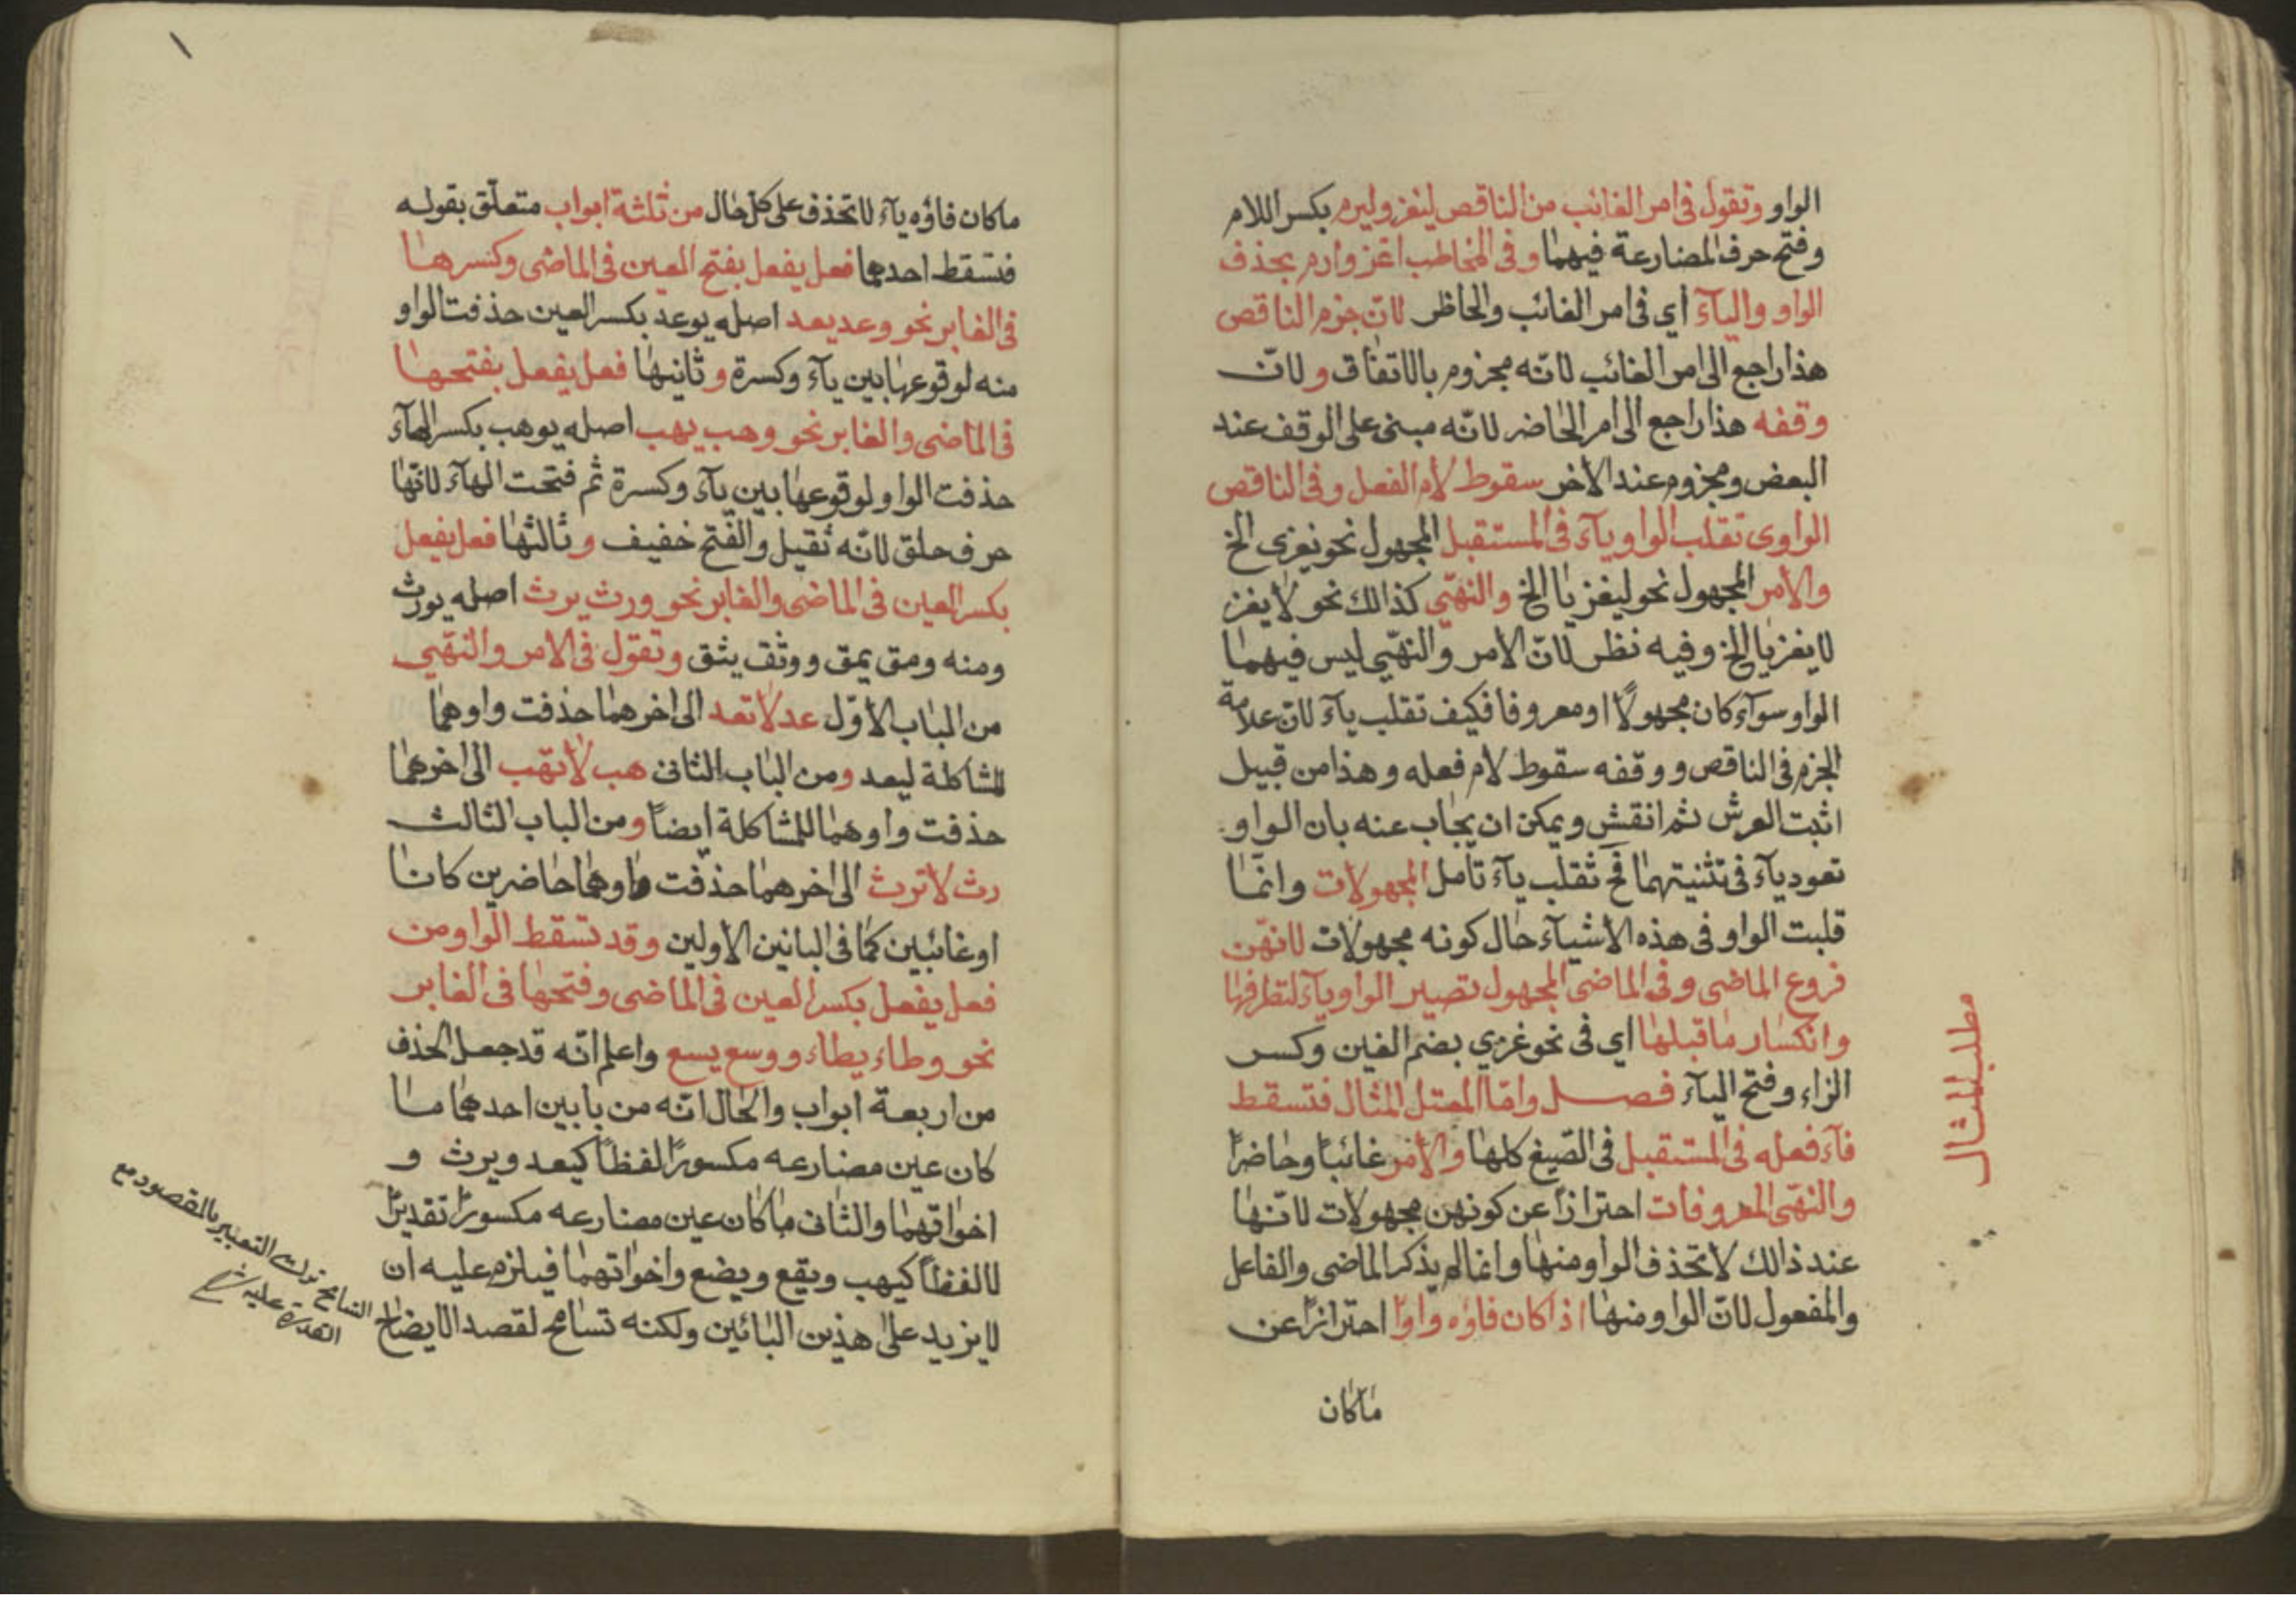 الواو وتقول فى امر الغائب من الناقص ليغز وليرم بكسر اللام
وفتح حرف المضارعة فيهما وفى المخاطب اغز وارم بحذف
الواو والياۤء أي فى امر الغائب والحاظر لانّ جزم الناقص
هذا راجع الى امر الغائب لانّه مجزوم بالاتفاق ولانّ
وقفه هذا راجع الى امر الحاضر لانّه مبنى على الوقف عند
البعض ومجزوم عند الاخر سقوط لام الفعل وفى الناقص
الواوى تقلب الواو ياۤء فى المستقبل المجهول نحو يغزى الخ
والامر المجهول نحو ليغزيا الخ والنهّي كذالك نحو لا يغز
لا يغزيا الخ وفيه نظر لانّ الامر والنهّي ليس فيهما
الواو سوآء كان مجهولاً او معروفا فكيف تقلب ياۤء لانّ علامة
الجزم فى الناقص ووقفه سقوط لام فعله وهذا من قبيل
اثبت العرش ثم انقش ويمكن ان يجاب عنه بان الواو
تعود ياۤء فى تثنيتهما فح تقلب ياۤء تأمل المجهولات وانّما
قلبت الواو فى هذه الاشيآء حال كونه مجهولات لانهّن
فروع الماضى وفى الماضى المجهول تصير الواو ياۤء لتطرفها
وانكسار ما قبلها اي فى نحو غزي بضم الغين وكسر
الزاء وفتح الياۤء فصل وامّا المعتل المثال فتسقط
فاۤء فعله فى المستقبل فى الصّيغ كلها والأمر غائباً وحاضراً
والنهّى المعروفات احترازاً عن كونهن مجهولات لانّها
عند ذالك لا تحذف الواو منها وانما لم يذكر الماضى والفاعل
والمفعول لانّ الواو منها اذا كان فاؤه واوًا احترازاً عن
ماكان
مطلب المثال
١
ماكان فاؤه ياۤء لا تحذف على كل حال من ثلثة ابواب متعلّق بقوله
فتسقط احدهما فعل يفعل بفتح العين فى الماضى وكسرها
فى الغابر نحو وعد يعد اصله يوعد بكسر العين حذفت الواو
منه لوقوعها بين ياۤء وكسرة وثانيها فعل يفعل بفتحها
فى الماضى والغابر نحو وهب يهب اصله يوهب بكسر الهاۤء
حذفت الواو لوقوعها بين ياۤء وكسرة ثم فتحت الهاۤء لانّها
حرف حلق لانّه ثقيل والفتح خفيف وثالثها فعل يفعل
بكسر العين فى الماضى والغابر نحو ورث يرث اصله يورث
ومنه ومق يمق ووثق يثق وتقول فى الامر والنهّي
من الباب الأوّل عد لا تعد الى اخرهما حذفت واوهما
للشاكلة ليعد ومن الباب الثانى هب لا تهب الى اخرهما
حذفت واوهما للمشاكلة ايضاً ومن الباب الثالث
رث لا ترث الى اخرهما حذفت واوهما حاضرين كانا
او غائبين كما فى البابين الأولين وقد تسقط الواو من
فعل يفعل بكسر العين فى الماضى وفتحها فى الغابر
نحو وطاء يطاء ووسع يسع واعلم انّه قد جعل الحذف
من اربعة ابواب والحال انّه من بابين احدهما ما
كان عين مضارعه مكسورًا لفظاً كيعد ويرث و
اخواتهما والثانى ماكان عين مضارعه مكسورًا تقديرًا
لا لفظاً كيهب ويقع ويضع واخواتهما فيلزم عليه ان
لا يزيد على هذين البابين ولكنه تسامح لقصد الايضاح
التسامح ترك التعبير بالمقصود مع
القدرة عليه